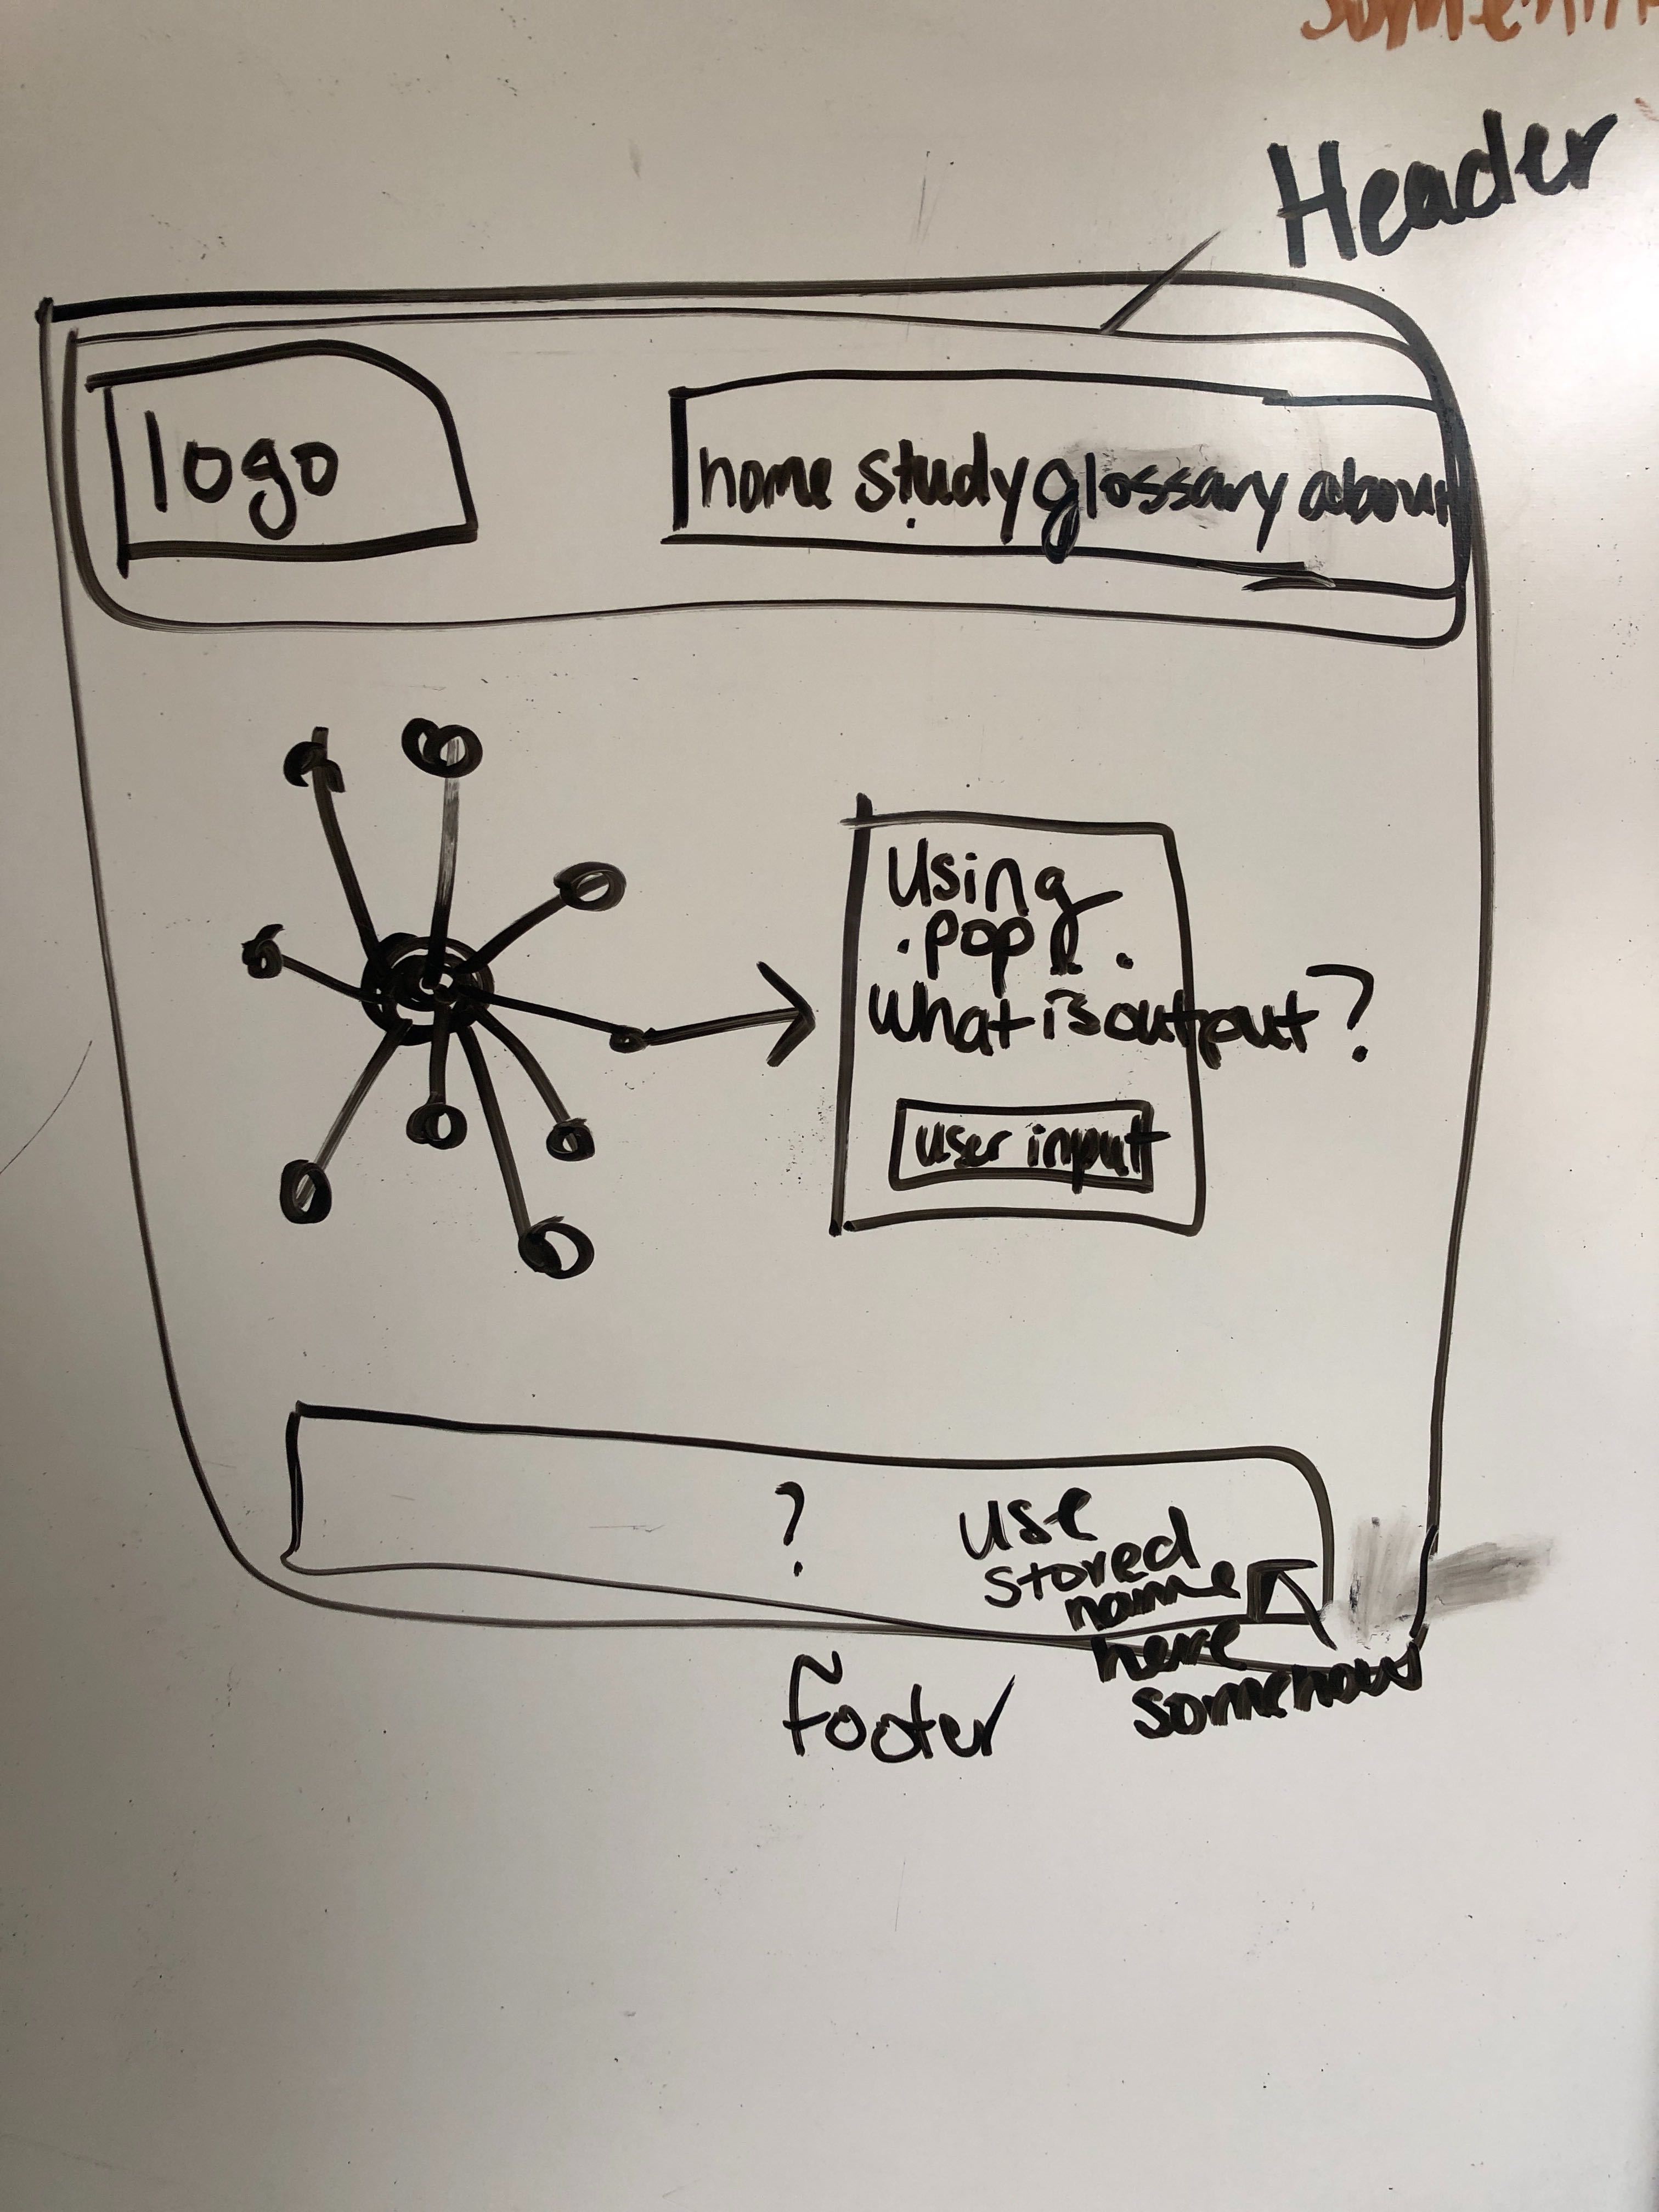 Header
logo
home study glossary about
Using
.pop
what is output?
user input
?
use
stored
name
here
somehow
footer